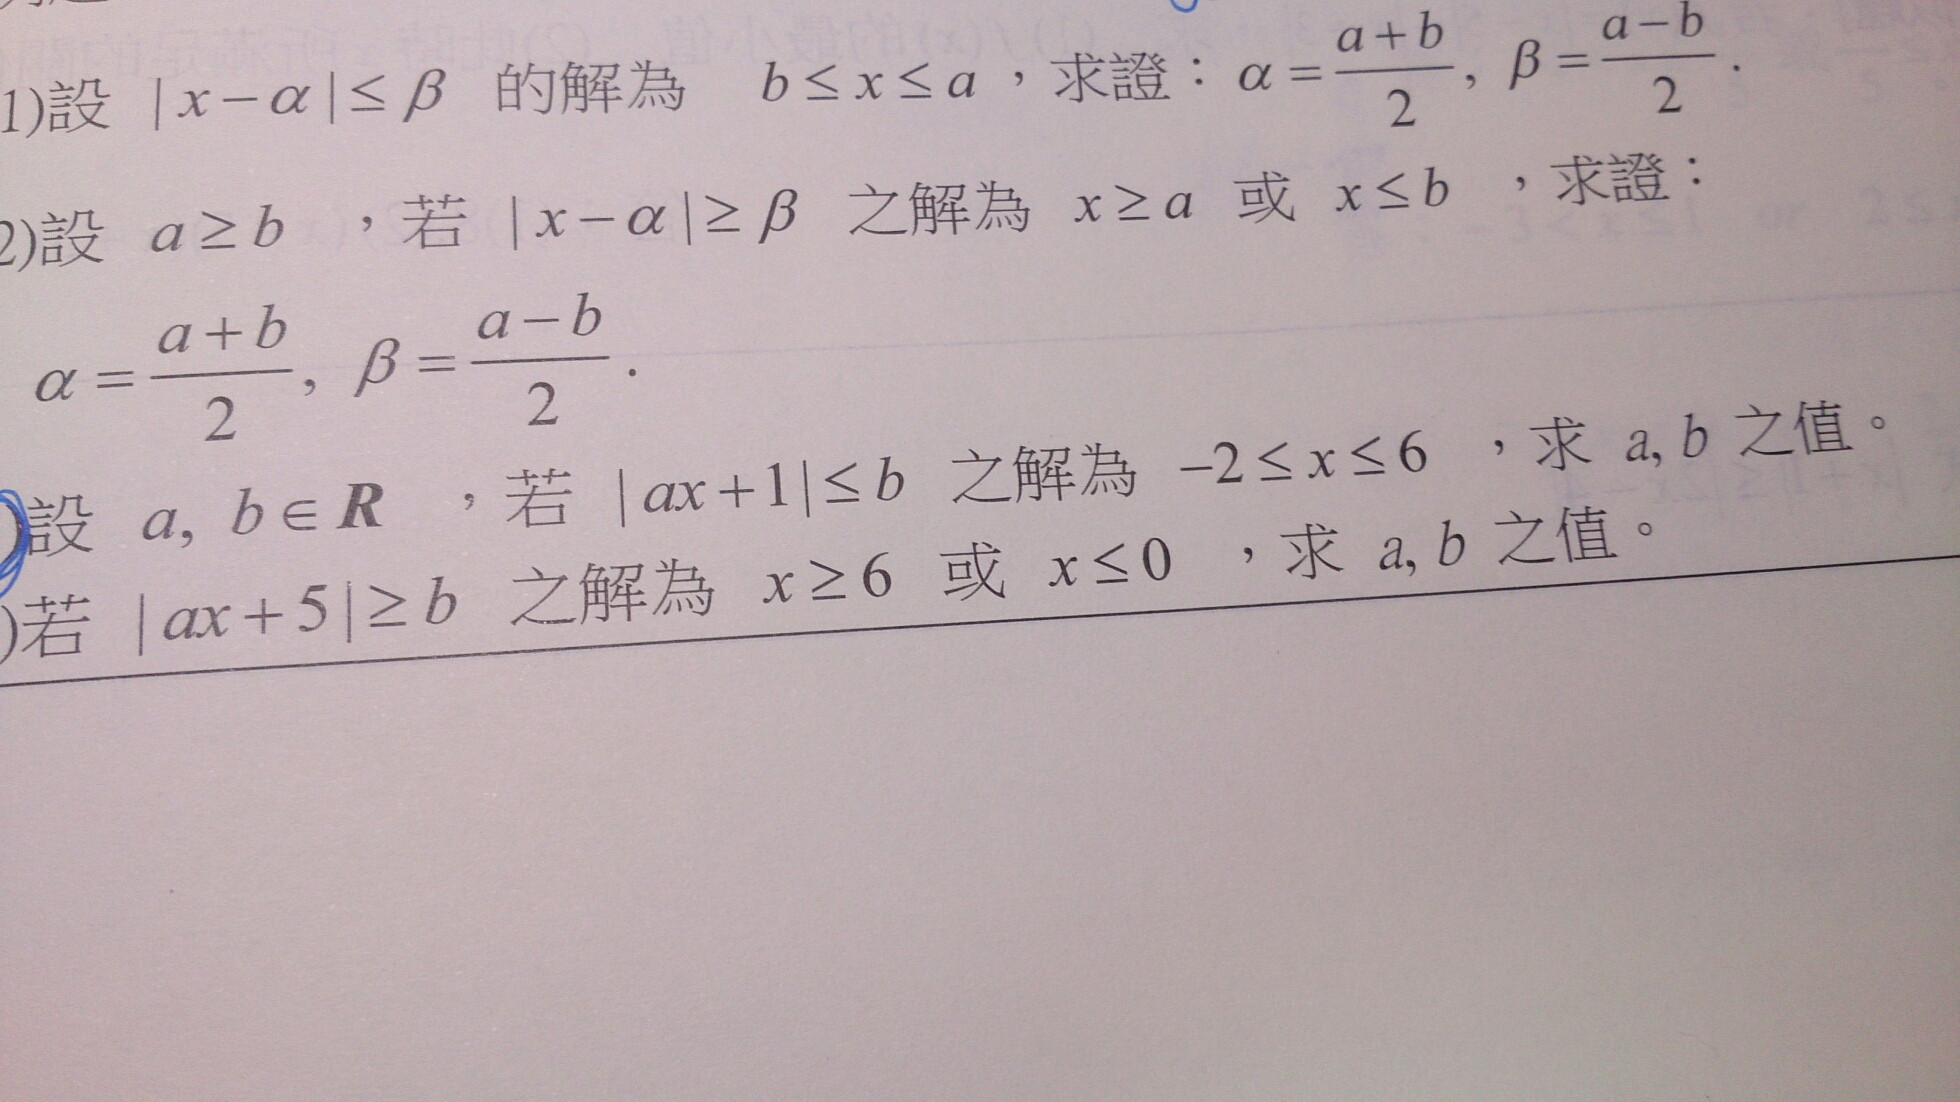 1)設 |x-α|≤β 的解為 b≤x≤a,求證:α=\frac{a+b}{2}, β=\frac{a-b}{2}.
2)設 a≥b ,若 |x-α|≥β 之解為 x≥a 或 x≤b ,求證:
α=\frac{a+b}{2}, β=\frac{a-b}{2}.
)設 a, b∈R ,若 |ax+1|≤b 之解為 -2≤x≤6 ,求 a, b 之值。
)若 |ax+5|≥b 之解為 x≥6 或 x≤0 ,求 a, b 之值。